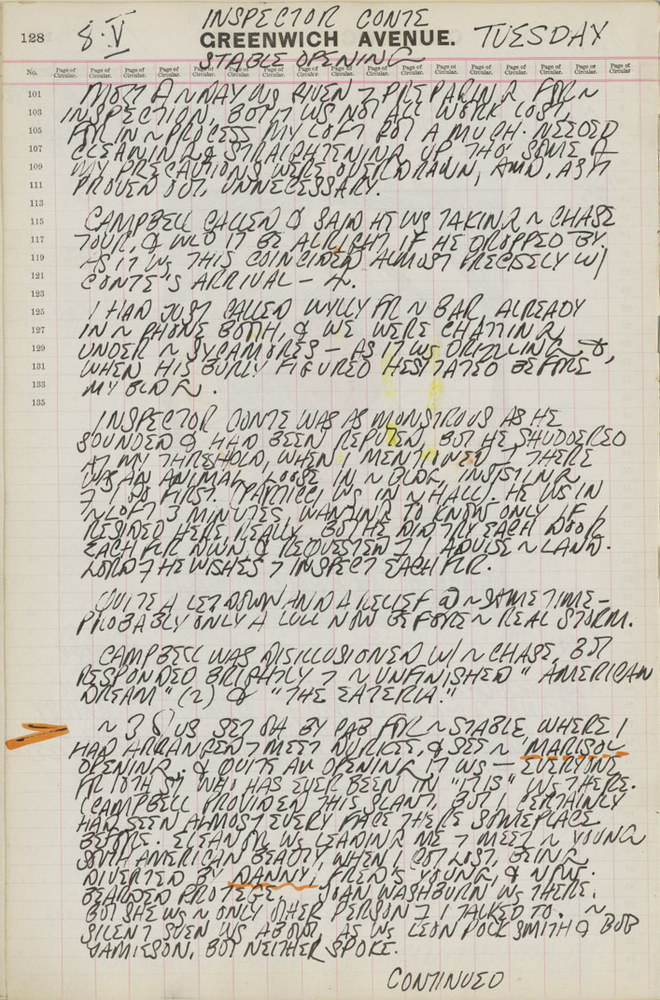 INSPECTOR CONTE
128 8·V GREENWICH AVENUE. TUESDAY
STABLE OPENING
No. Page of Circular. Page of Circular. Page of Circular. Page of Circular. Page of Circular. Page of Circular. Page of Circular. Page of Circular. Page of Circular. Page of Circular. Page of Circular. Page of Circular. Page of Circular. Page of Circular. Page of Circular.
101 MOST ~ DAY WS GIVEN 7 PREPARING FOR ~
103 INSPECTION, BUT IT WS NOT ALL WORK LOST,
105 FOR IN ~ PROCESS MY LOFT GOT A MUCH-NEEDED
107 CLEANING & STRAIGHTENING UP, THO SOME
109 MY PRECAUTIONS WERE OVERDRAWN, AND, AS IT
111 PROVED OUT, UNNECESSARY.
113
115 CAMPBELL CALLED & SAID HE WS TAKING ~ CHASE
117 TOUR, & WLD IT BE ALRIGHT IF HE DROPPED BY.
119 AS IT WS THIS COINCIDED ALMOST PRECISELY W/
121 CONTE'S ARRIVAL – 4.
123
125 I HAD JUST CALLED WYLLY FR ~ BAR, ALREADY
127 IN ~ PHONE BOTH, & WE WERE CHATTING
129 UNDER ~ SYCAMORES – AS IT WS DRIZZLING
131 WHEN HIS BURLY FIGURED HESITATED BEFORE
133 MY BLDG.
135
INSPECTOR CONTE WAS AS MONSTROUS AS HE
SOUNDED & HAD BEEN REPUTED, BUT HE SHUDDERED
AT MY THRESHOLD, WHEN I MENTIONED 7 THERE
WS AN ANIMAL LOOSE IN ~ BLDG, INSISTING
7 I GO FIRST. (PARTICCI WS IN ~ HALL). HE WS IN
~ LOFT 3 MINUTES, WANTING TO KNOW ONLY IF I
RESIDED HERE, REALLY. BUT HE DID TRY EACH DOOR
EACH FLR DOWN & REQUESTED 7 I ADVISE ~ LAND-
LORD 7 HE WISHES 7 INSPECT EACH FLR.
QUITE A LET DOWN AND A RELIEF @ ~ SAME TIME –
PROBABLY ONLY A LULL NOW BEFORE ~ REAL STORM.
CAMPBELL WAS DISILLUSIONED W/ ~ CHASE, BUT
RESPONDED BRIGHTLY 7 ~ UNFINISHED "AMERICAN
DREAM" (2) & "THE EATERIA."
~ 3 US SET OFF BY CAB FOR ~ STABLE, WHERE I
HAD ARRANGED 7 MEET DURKEE, & SEE ~ MARISOL
OPENING. & QUITE AN OPENING IT WS – EVERYONE
FR 10TH ST WHO HAS EVER BEEN IN "IT IS" WS THERE.
(CAMPBELL PROVIDED THIS SLANT, BUT I CERTAINLY
HAD SEEN ALMOST EVERY FACE THERE SOMEPLACE
BEFORE. ELEANOR WS LEADING ME 7 MEET ~ YOUNG
SOUTH AMERICAN BEAUTY, WHEN I GOT LOST, BEING
DIVERTED BY DANNY, FRED'S YOUNG, & NOW-
BEARDED PROTEGE. JOAN WASHBURN WS THERE.
BUT SHE WS ~ ONLY OTHER PERSON 7 I TALKED TO. ~
SILENT SVEN WS ABOUT, AS WS LEON POLK SMITH & BOB
JAMIESON, BUT NEITHER SPOKE.
CONTINUED